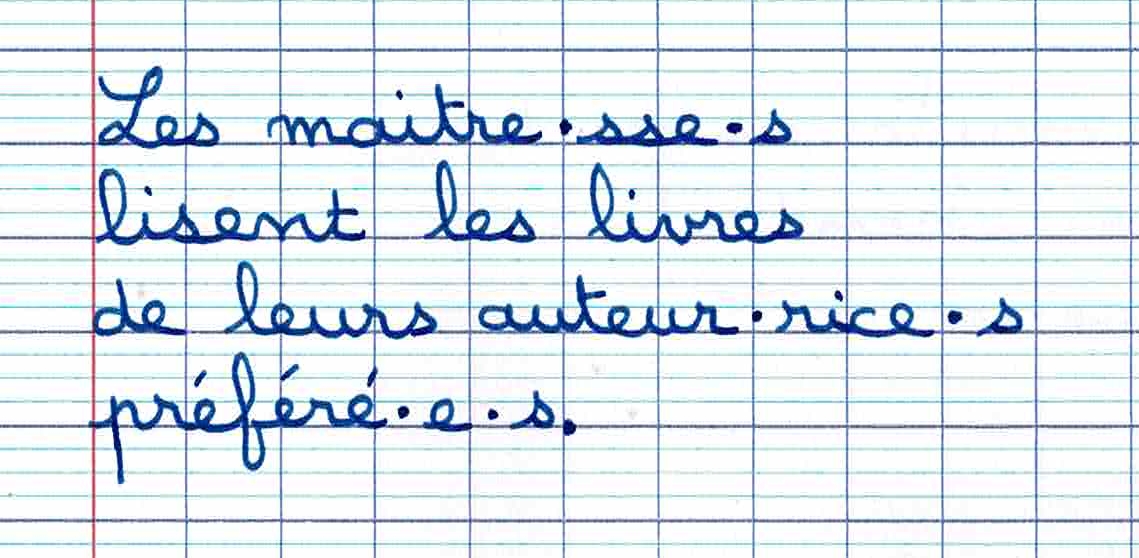 Les maitre·sse·s
lisent les livres
de leurs auteur·rice·s
préféré·e·s.